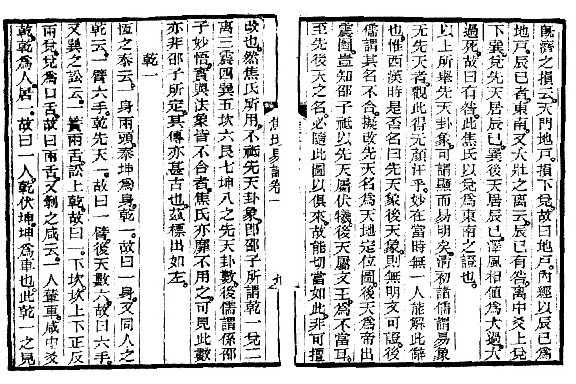 既濟之損云。天門地戶。損下兌。故曰地戶。內經以辰巳為
地戶。辰巳者。東南。又大壯之離云。辰巳有咎。离中爻上兌
下巽。兌先天居辰巳。巽後天居辰巳。澤風相值為大過。大過
死。故曰有咎。此焦氏以兌為東南之證也。
以上所舉先天卦象。可謂顯而易明矣。清初諸儒謂易象
无先天者。觀此得无顏汗乎。妙在當時無一人能解此辭
也。惟西漢時是否名曰先天象後天象。則無明文可證。後
儒謂其名不合。擬改先天名為天地定位圖。後天為帝出
震圖。豈知邵子祇以先天屬伏犧。後天屬文王。為不當耳。
至先後天之名。必隨此圖以俱來。故能切當如此。非可擅
焦氏易詁卷一
九
改也。然焦氏所用。不祇先天卦象。即邵子所謂乾一兌二
离三震四巽五坎六艮七坤八之先天卦數。後儒謂係邵
子妙悟。實與法象皆不合者。焦氏亦靡不用之。可見此數
亦非邵子所定。其傳亦甚古也。茲標出如左。
乾一
恆之泰云。一身兩頭。泰坤為身。乾一。故曰一身。又同人之
乾云。一臂六手。乾先天一。故曰一臂。後天數六。故曰六手。
又巽之訟云。一簧兩舌。訟上乾。故曰一。下坎。坎上下正反
兩兌。兌為口舌。故曰兩舌。又剝之咸云。一人輦車。咸中爻
乾。乾為人。居一。故曰一人。乾伏坤。坤為車也。此乾一之見